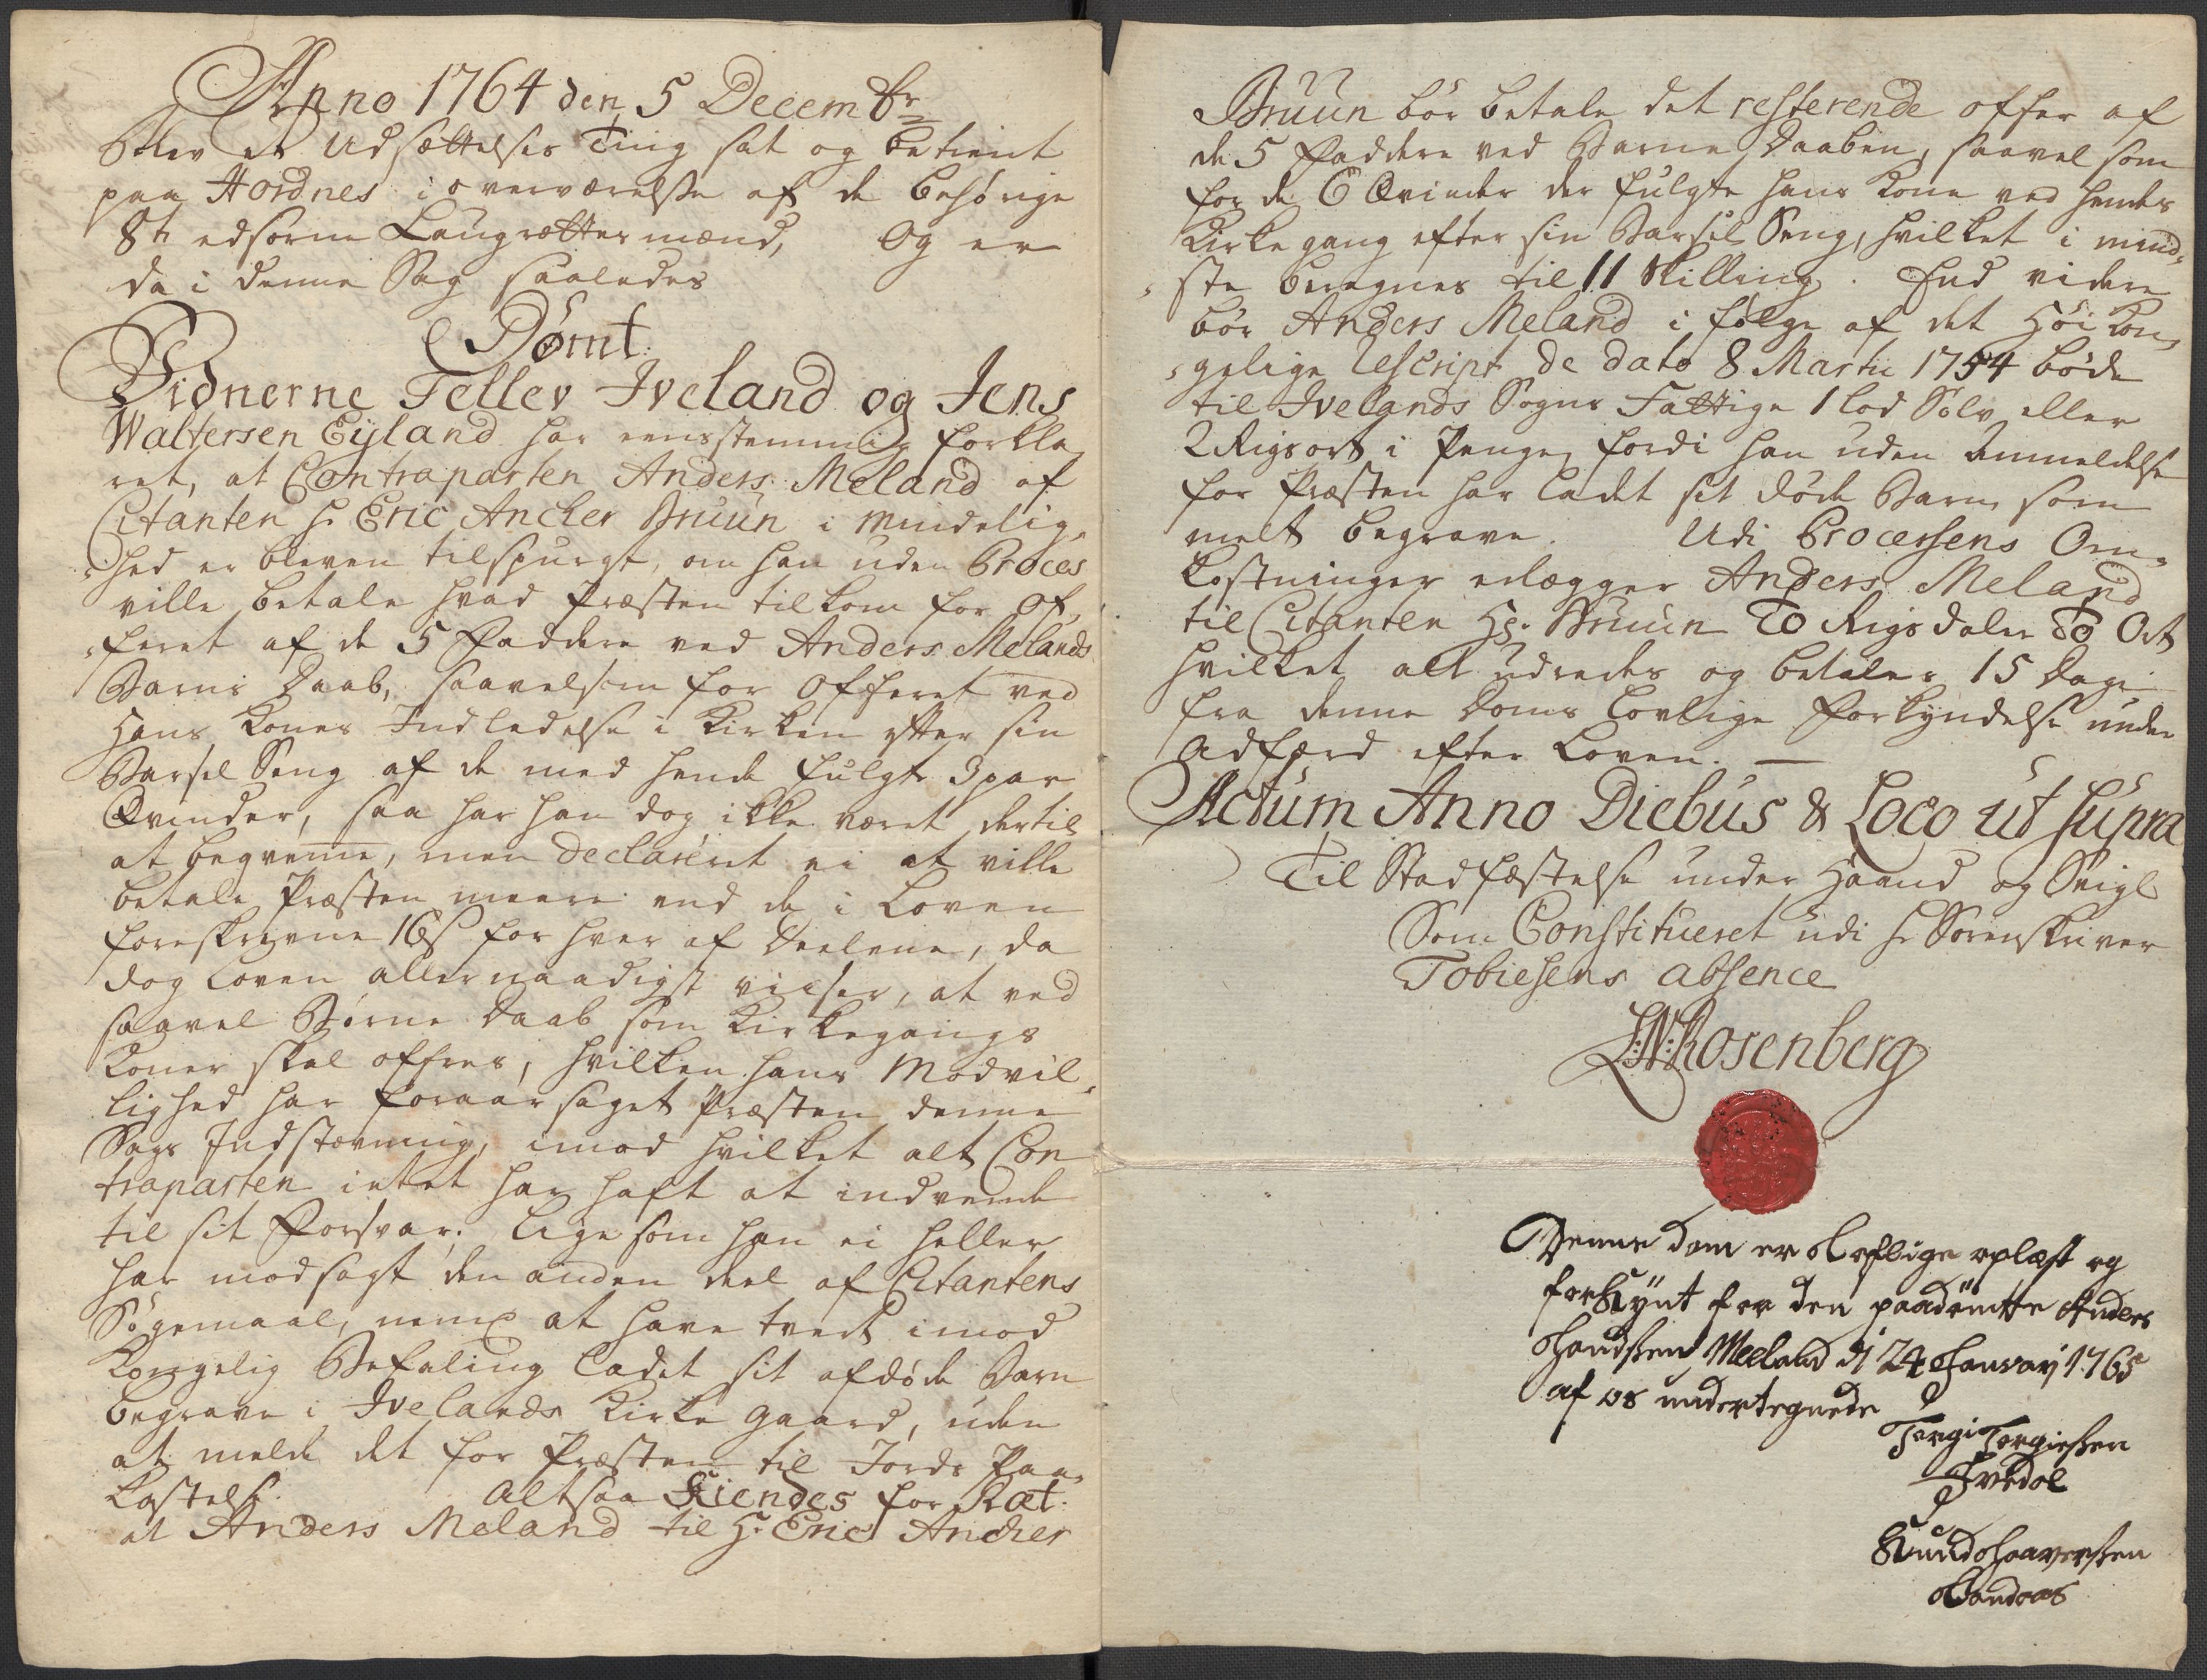 Anno 1764 den 5 Decembr
Blev et Udsættelses Ting sat og betient
paa Hordnes i overværelse af de behørige
8te edsorne Laugrættes mænd, Og er
da i denne Sag saaledes
Dømt.
Vidnerne Tellev Iveland og Jens
Waltersen Eyland har eensstemmig forkla„
ret, at Contraparten Anders Meland af
Citanten Hr Eric Ancher Bruun i Mindelig„
„hed er bleven tilspurgt, om han uden Proces
ville betale hvad Præsten tilkom for Of„
„feret af de 5 Faddere ved Anders Melands
Barns Daab, saavelsom for Offeret ved
Hans Kones Indledelse i Kirken efter sin
Barsel Seng af de med hende fulgte 3 par
Qvinder, saa har han dog ikke været dertil
at beqvemme, men declareret ei at ville
betale Præsten meere end de i Loven
foreskrevne 16 s for hver af Deelene, da
dog Loven allernaadigst viiser, at ved
saavel Børne Daab som Kirkegangs
Koner skal offres, hvilken hans Modvil„
lighed har foraarsaget Præsten denne
Sags Indstævning, imod hvilket alt Con
traparten intet har haft at indvende
til sit Forsvar; Lige som han ei heller
har modsagt den anden deel af Citantens
Søgemaal, neml at have tvert imod
Kongelig Befaling ladet sit afdøde Barn
begrave i Ivelands Kirke gaard, uden
at melde det for Præsten til Jords Paa„
kastelse. Altsaa Kiendes for Ræt:
at Anders Meland til Hr Eric Ancher
Bruun bør betale det resterende offer af
de 5 Faddere ved Barne Daaben, saavel som
for de 6 Qvinder der fulgte hans Kone ved hendes
Kirkegang efter sin Barsel Seng, hvilket i mind„
„ste beregnes til 11 Skilling. End videre
bør Anders Meland i følge af det Høi Kon„
„gelige Rescript de dato 8 Martii 1754 bøde
til Ivelands Sogns Fattige 1 lod Sølv eller
2 Rigsort i Penge, fordi han uden Anmeldelse
for Præsten har ladet sit døde Barn som
melt begrave. Udi Processens Om„
kostninger erlægger Anders Meland
til Citanten Hr. Bruun To Rigsdaler To Ort
hvilket alt udredes og betales 15 Dage
fra denne Doms Lovlige Forkyndelse under
Adfærd efter Loven. —
Actum Anno Diebus & Loco ut supra
Til Stadfæstelse under Haand og Seigl
Som Constitueret udi Hr Sorenskriver
Tobiesens absence
Rosenberg
Denne dom er Lovlige oplæst og
forkynt for den paadømtte Anders
Meeland d 24 Januarj 1765
af os undertegnede
Torgi Torgiessen
Ivedal
Knud Haaverssen